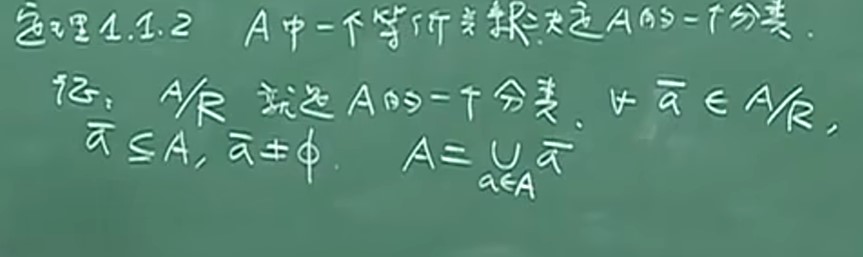 定理1.1.2 A中一个等价关系R决定A的一个分类.
证: A/R 就是A的一个分类. ∀ ā ∈ A/R,
ā ⊆ A, ā ≠ ϕ. A = ∪ ā
a∈A